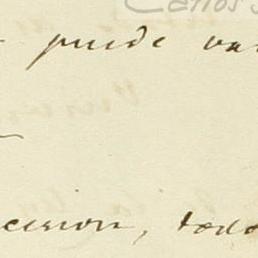 Carlos
puede va
cesion, todo